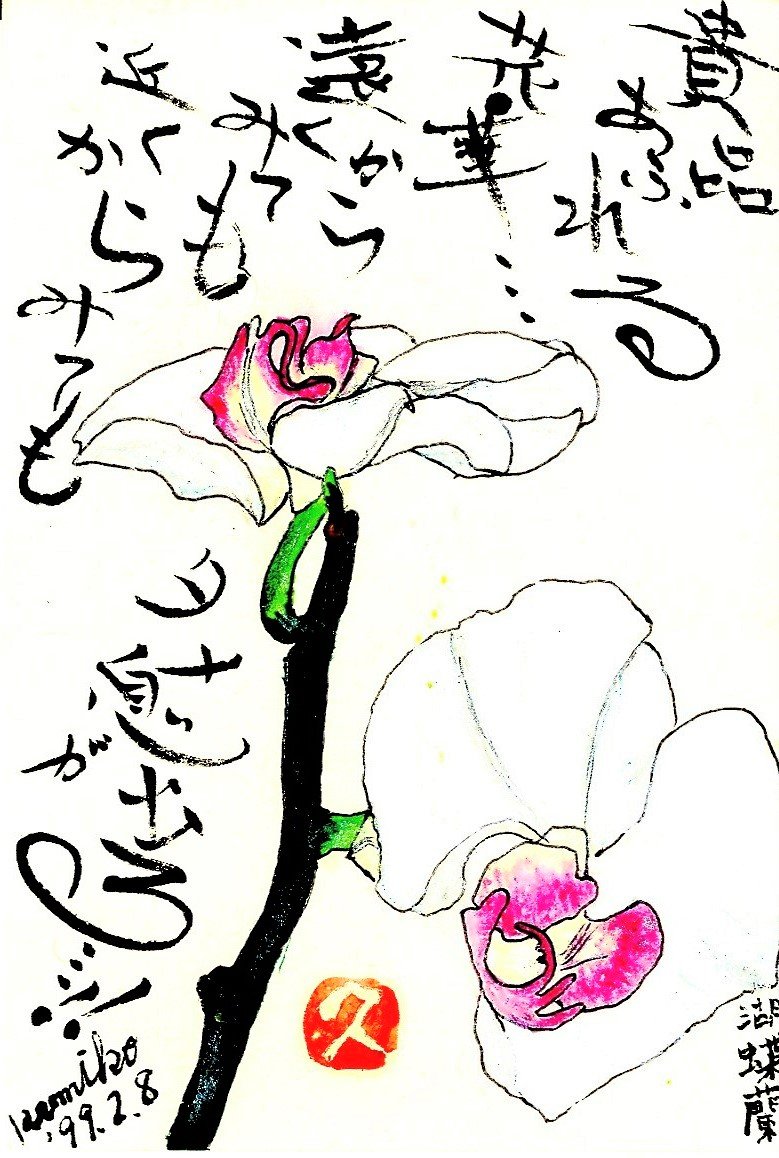 貴品
あふれる
花華…
遠くから
みても
近くから
みても
タメ息が
出る…!
Kumiko
'99.2.8
久
湖蝶蘭